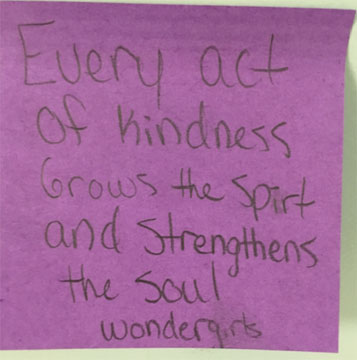 Every act
of kindness
Grows the Spirt
and strengthens
the soul
wondergirls